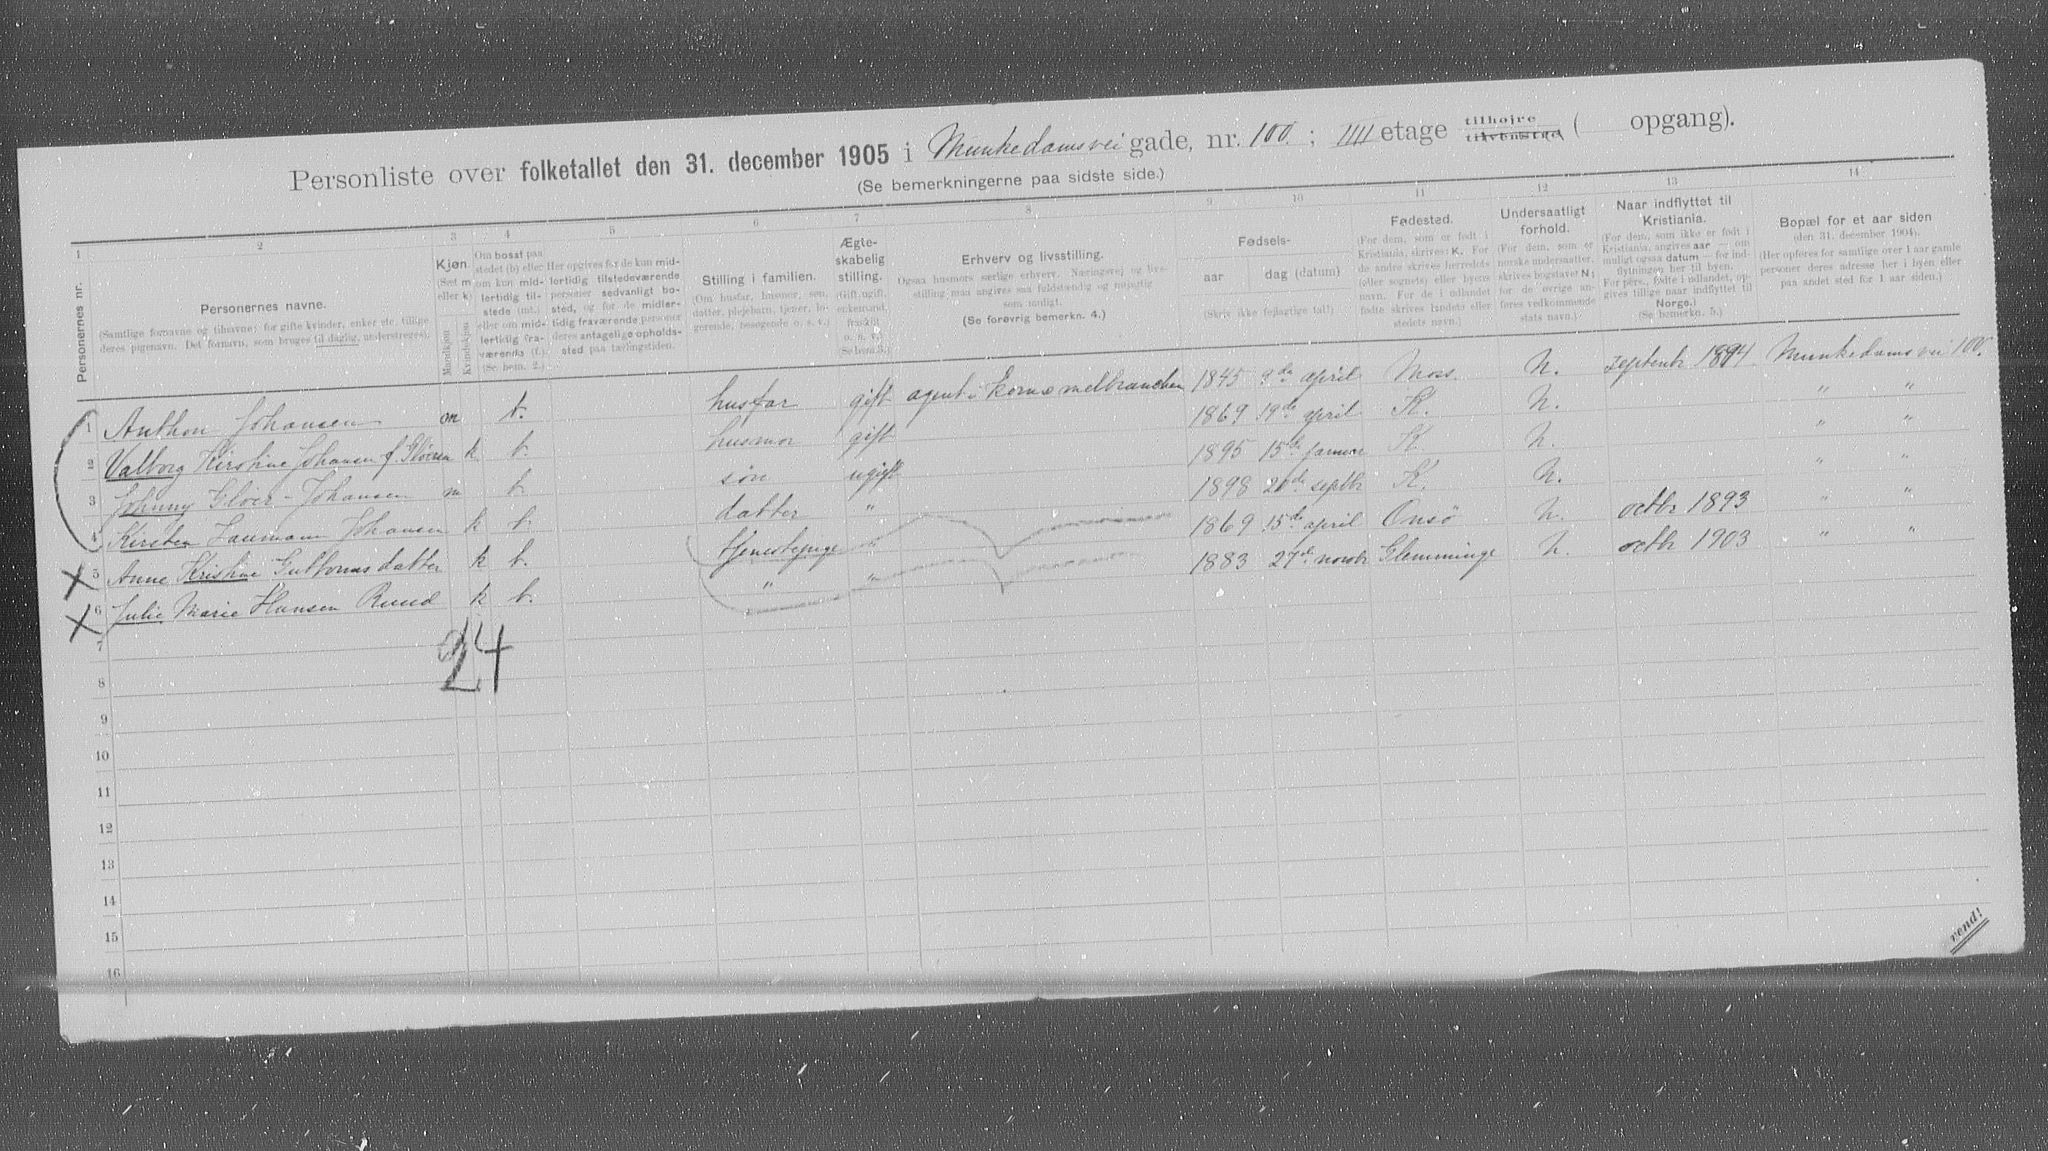 Personliste over folketallet den 31. december 1905 i Munkedamsvei gade, nr. 100 ; IIII etage tilhøjre tilvenstre ( opgang).
(Se bemerkningerne paa sidste side.)
1 2 3 4 5 6 7 8 9 10 11 12 13 14
Personernes nr.
Personernes navne.
(Samtlige fornavne og tilnavne; for gifte kvinder, enker etc. tillige
deres pigenavn. Det fornavn, som bruges til daglig, understreges).
Kjøn.
(Sæt m
eller k)
Mandkjøn
Kvindekjøn
Om bosat paa
stedet (b) eller
om kun mid-
lertidig til-
stede (mt.)
eller om mid-
lertidig fra-
værende (f.)
(Se bem. 2.)
Her opgives for de kun mid-
lertidig tilstedeværende
personer sedvanligt bo-
sted, og for de midler-
tidig fraværende personer
deres antagelige opholds-
sted paa tællingstiden.
Stilling i familien.
(Om husfar, husmor, søn,
datter, plejebarn, tjener, lo-
gerende, besøgende o. s. v.)
Ægte-
skabelig
stilling.
(Gift, ugift,
enkemand,
fraskilt
o. s. v.
(Se bem.3.)
Erhverv og livsstilling.
Ogsaa husmors særlige erhverv. Næringsvej og livs-
stilling maa angives saa fuldstændig og nøjagtig
som muligt.
(Se forøvrig bemerkn. 4.)
Fødsels-
aar dag (datum)
(Skriv ikke fejlagtige tal!)
Fødested.
(For dem, som er født i
Kristiania, skrives: K. For
de andre skrives herredets
(eller sognets) eller byens
navn. For de i udlandet
fødte skrives landets eller
stedets navn.)
Undersaatligt
forhold.
(For dem, som er
norske undersaatter,
skrives bogstavet N;
for de øvrige an-
føres vedkommende
stats navn.)
Naar indflyttet til
Kristiania.
(For dem, som ikke er født i
Kristiania, angives aar — om
muligt ogsaa datum — for ind-
flytningen her til byen.
For pers., fødte i udlandet, op-
gives tillige naar indflyttet til
Norge.)
(Se bemerkn. 5.)
Bopæl for et aar siden
(den 31. december 1904).
(Her opføres for samtlige over 1 aar gamle
personer deres adresse her i byen eller
paa andet sted for 1 aar siden.)
1 Anthon Johansen m b. husfar gift agent i korn o melbranchen 1845 9de april Moss. N. septenbr 1894 Munkedamsvei 100.
2 Valborg Kirstine Johansen f. Gløersen k b. husmor gift 1869 19de april K. N. " "
3 Johnny Gløer-Johansen m b. søn ugift 1895 15de januar K. N. " "
4 Kirsten Laumann Johansen k b. datter " 1898 septbr K. N. " "
5 Anne Kristine Guttormsdatter k b. tjenestepige " 1869 15de april Onsö N. octbr 1893 " "
6 Julie Marie Hansen Ruud k b. " " 1883 27de novbr Glemminge N. octbr 1903 " "
7
24
8
9
10
11
12
13
14
15
16
vend!